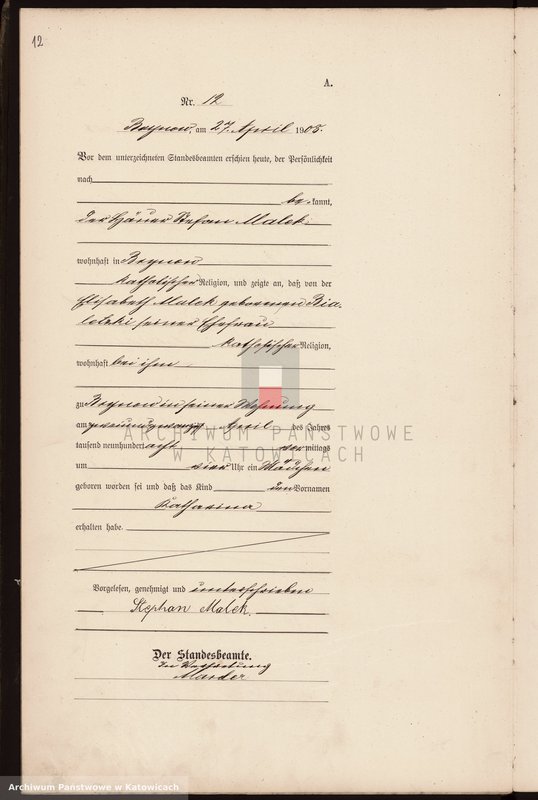 12
A.
Nr. 12
Brynow, am 27. April 1908.
Vor dem unterzeichneten Standesbeamten erschien heute, der Persönlichkeit
nach
be-kannt,
der Häuer Stefan Malek
wohnhaft in Brynow
katholischer Religion, und zeigte an, daß von der
Elisabeth Malek geborenen Bia-
letzki seiner Ehefrau
katholischer Religion,
wohnhaft bei ihm
zu Brynow in seiner Wohnung
am April des Jahres
tausend neunhundert acht vor mittags
um vier Uhr ein Mädchen
geboren worden sei und daß das Kind den Vornamen
Katharina
erhalten habe.
Vorgelesen, genehmigt und unterschrieben
Stephan Malek.
Der Standesbeamte.
In Vertretung
ARCHIWUM PAŃSTWOWE
W KATOWICACH
Archiwum Państwowe w Katowicach